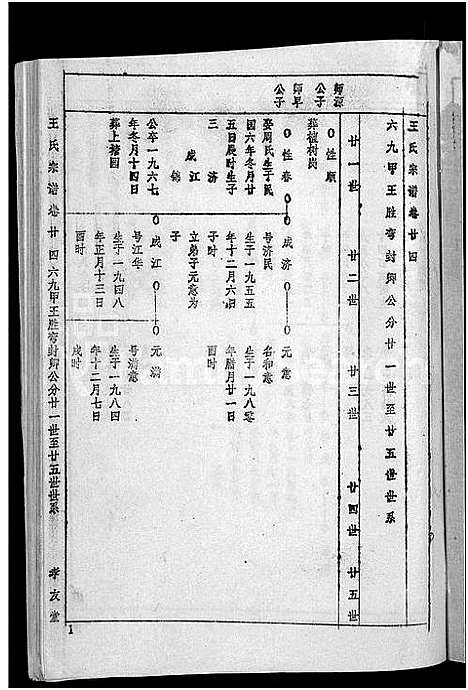 王氏宗谱卷廿四
六九甲王胜弯封卿公分廿一世至廿五世世系
廿一世 廿二世 廿三世 廿四世 廿五世
师源公子
○性顺
葬檀树岗
师早公子
○性春○——○成济○——○元意
娶周氏生子民 号济民 名和意
国六年冬月廿 生于一九五五 生于一九八零
五日辰时生子 年十二月六日 年腊月廿一日
三 济 子时 酉时
成江 立弟子元意为
锦 子
公卒一九六七 ○成江○——○元满
年冬月十四日 号江华 号满意
葬上塘园 生于一九四八 生于一九八四
年正月十三日 年十二月七日
酉时 戌时
王氏宗谱卷廿四六九甲王胜弯封卿公分廿一世至廿五世世系 孝友堂
1